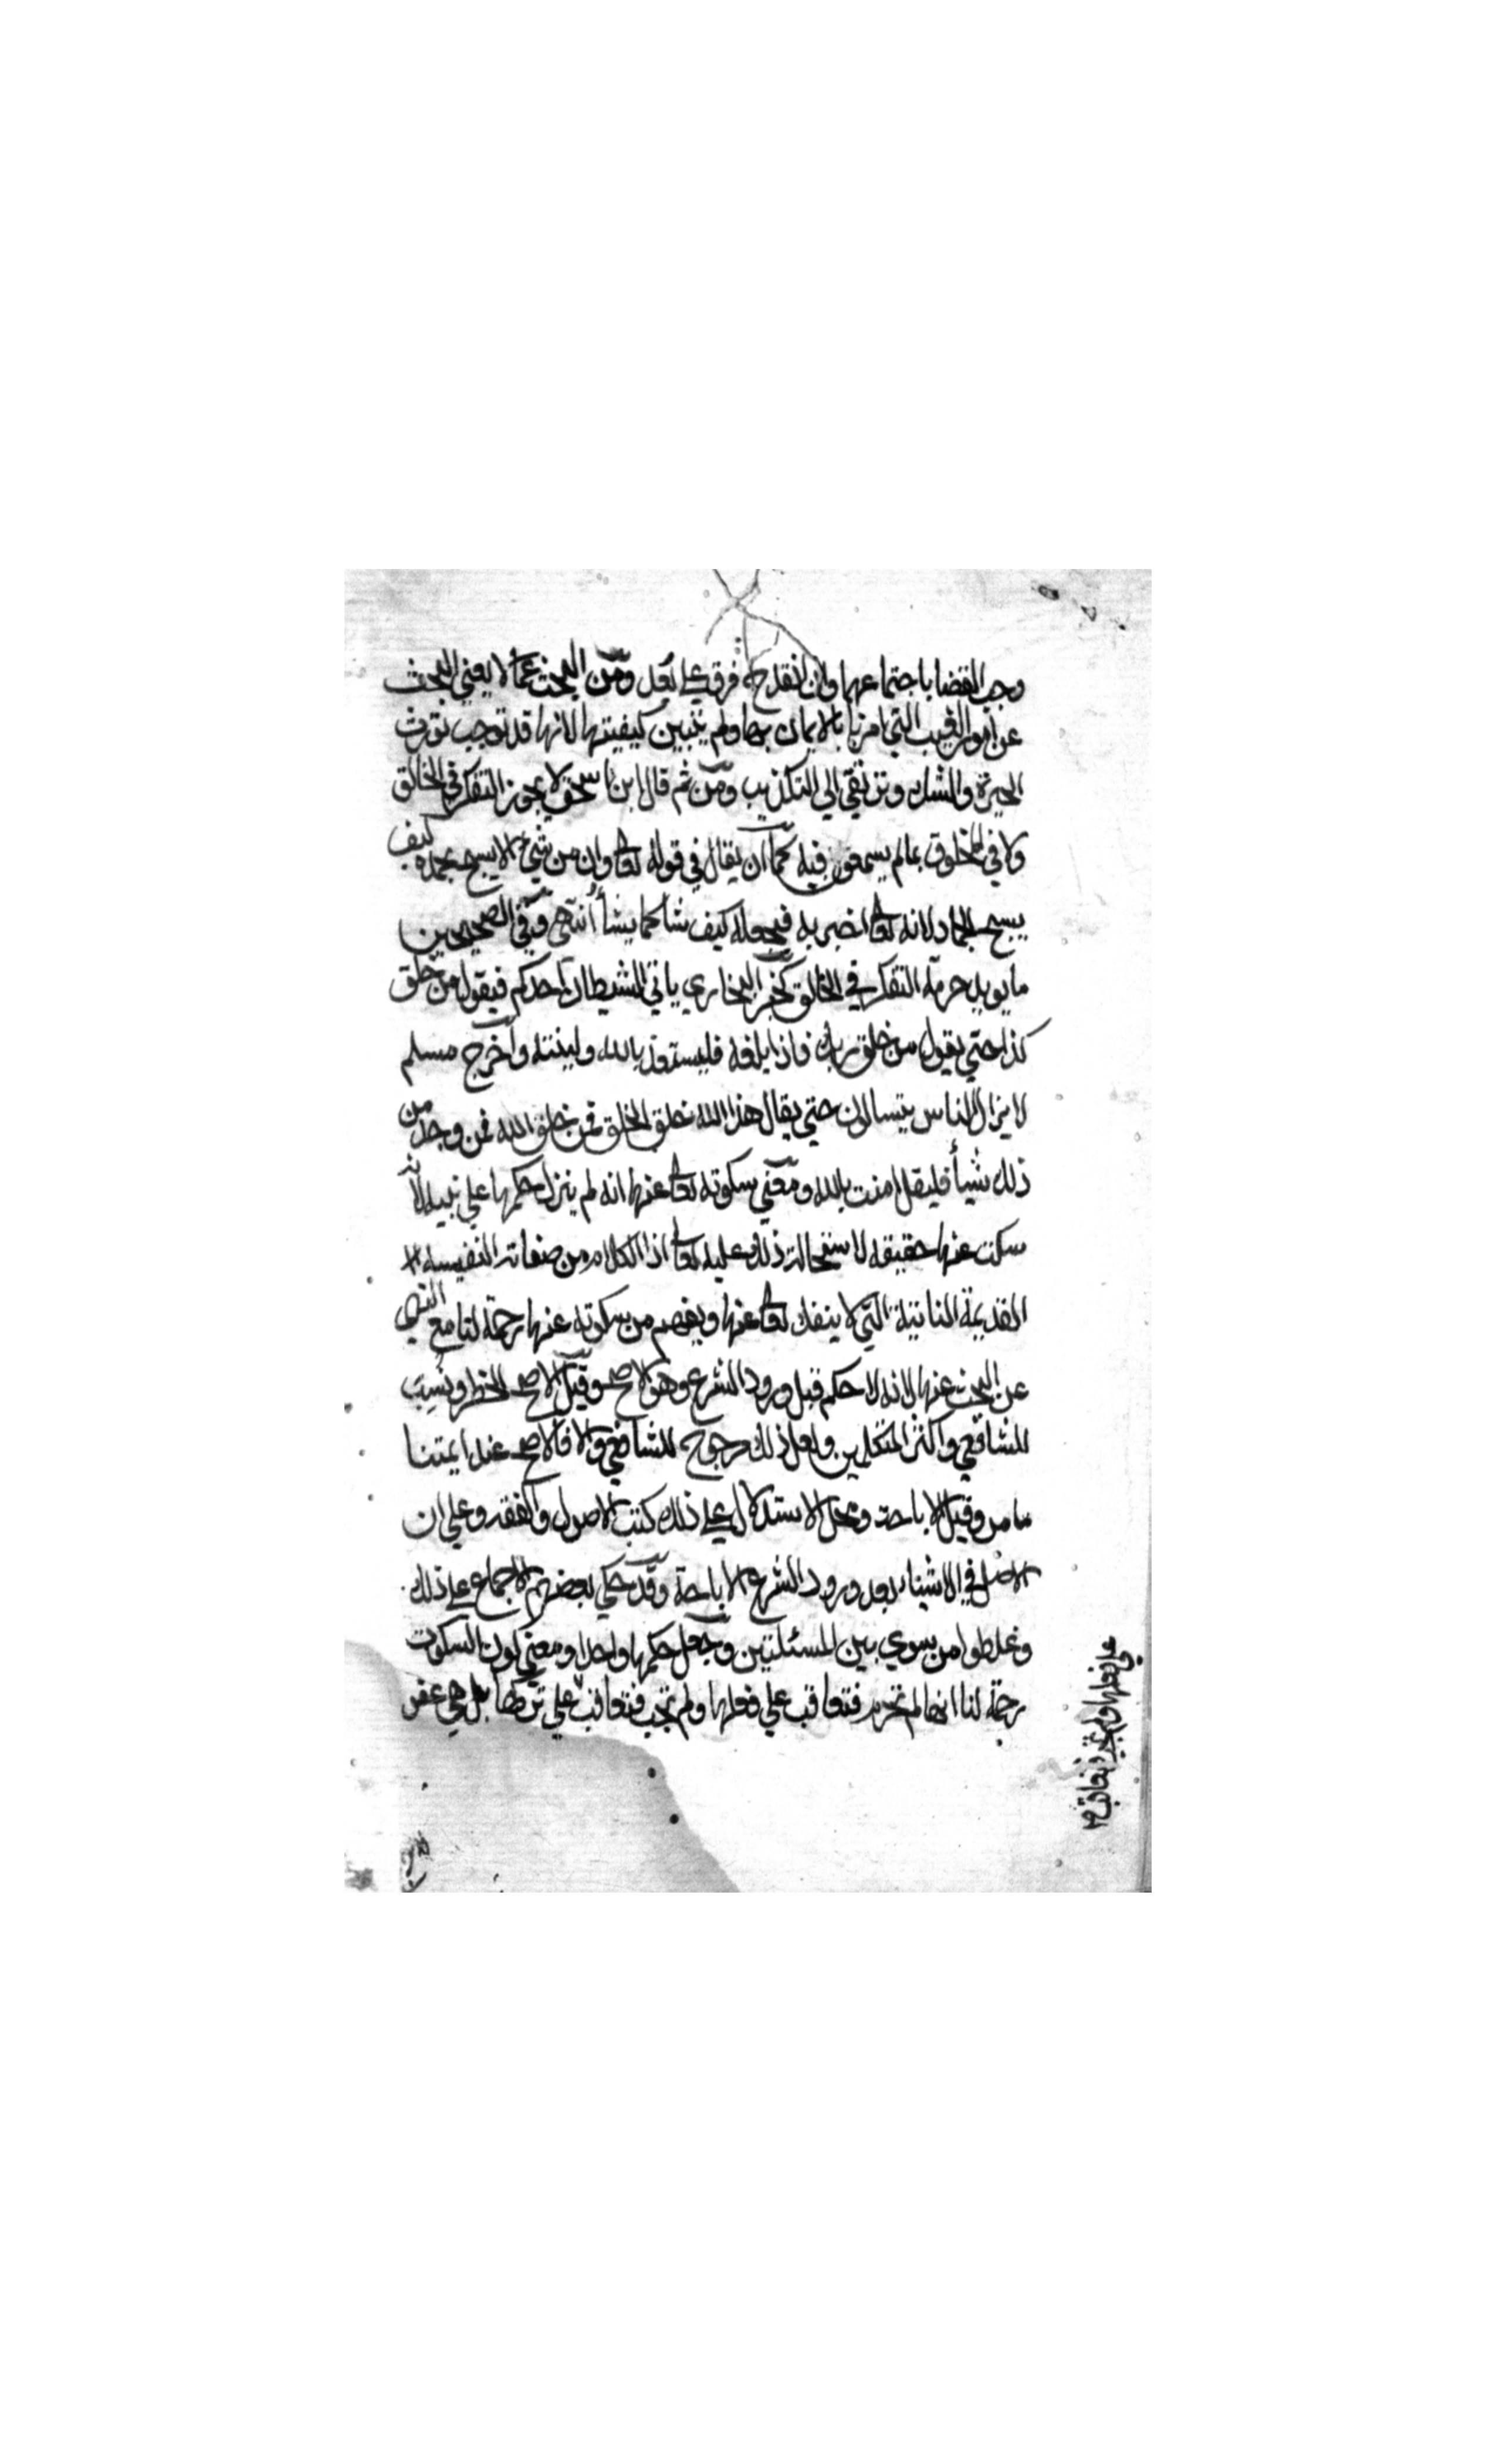 وجب القضا باجتماعهما وان انقدح له فرق علي بعد ومن البحث عما لا يعني البحث
عن امور الغيب التي امرنا بالايمان بها ولم يتبين كيفيتها لانها قد توجب تورث
الحيرة والشك وترتقي الي التكذيب ومن ثم قال ابن اسحق لا يجوز التفكر في الخالق
ولا في المخلوق بمالم يسمعوه فيه كما ان يقال في قوله تعالى وان من شيء الا يسبح بحمده كيف
يسبح الجماد لانه تعالى اخبر به فيجعله كيف شا كما يشأ انتهي وفي الصحيحين
ما يويد حرمة التفكر في الخالق كخبر البخاري ياتي الشيطان احدكم فيقول من خلق
كذا حتي يقول من خلق ربك فاذا بلغه فليستعذ بالله ولينته واخرج مسلم
لا يزال الناس يتسالون حتي يقال هذا الله خلق الخلق فمن خلق الله فمن وجد من
ذلك شيأ فليقل امنت بالله ومعني سكوته تعالى عنها انه لم ينزل حكمها علي نبيه لا انه
سكت عنها حقيقه لاستحالة ذلك عليه تعالى اذ الكلام من صفاته النفيسه
القديمة الذاتية التي لا ينفك تعالى عنها ويفهم من سكوته عنها رحمة لنا مع النهي
عن البحث عنها لانه لا حكم قبل ورود الشرع وهو الاصح وقيل الاصح الحظر ونسب
للشافعي واكثر المتكلمين ولعل ذلك مرجوح للشافعي والا فالاصح عند ايمتنا
ما مر وقيل الاباحة ومحل الاستدلال علي ذلك كتب الاصول والفقه وعلي ان
الاصل في الاشياء بعد ورود الشرع الاباحة وقد حكي بعضهم الاجماع علي ذلك
وغلطوا من يسوي بين المسئلتين وجعل حكمها واحدا ومعني كون السكوت
رحمة لنا انها لم تحرم فتعاقب علي فعلها ولم تجب فتعاقب علي تركها بل هي عفو